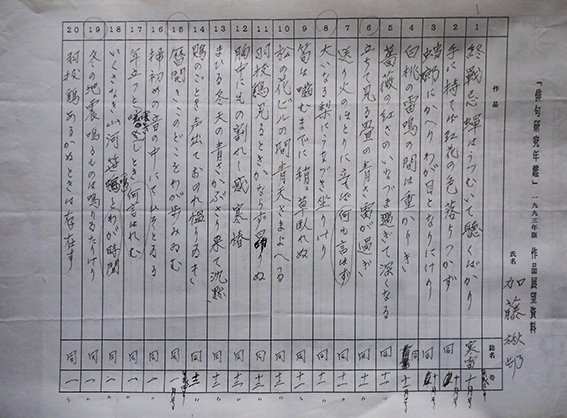 「俳句研究年鑑」一九九三年版 作品展望資料
氏名 加藤楸邨
作品 誌名 号
1 終戦忌蟬はうつむいて聴くばかり 寒雷 十月号
2 手に持てば紅花の色落ちつかず 同
3 にかへりわが目となりにけり 同
4 白桃の雷鳴の間は重かりき 同 十一
5 薔薇の紅さのいなづま過ぎて深くなる 同 十一 〃
6 立ちて見る螢の青さ雷が過ぎ 同 十一 〃
7 送り火のほとりに立てば何も言はず 同 十一 〃
8 大いなる梨にうなづき坐りけり 同 十一 〃
9 笛は噛むまでに 草臥れぬ 同 十二 〃
10 松の花ビルの間青天さまよへる 同 十二 〃
11 羽抜鶏見るときかならず ぬ 同 十二 〃
12 胸中にもの割れし感寒椿 同 十二 〃
13 まひる冬天の青さかぶさり来て沈黙 同 十二 〃
14 鵙のごとき声出ておのれ慍りゐき 同 十二 〃
15 暦開きこのどこをわが歩みゐむ 同 一月号
16 の音の中にてひそとゐる 同 一 〃
17 年立つと しとき何言はれむ 同 一 〃
18 いくさなき山河笹鳴とわが時間 同 一 〃
19 冬の地震鳴るものは鳴りゐたりけり 同 一 〃
20 羽抜鶏あるかぬときは存在す 同 一 〃